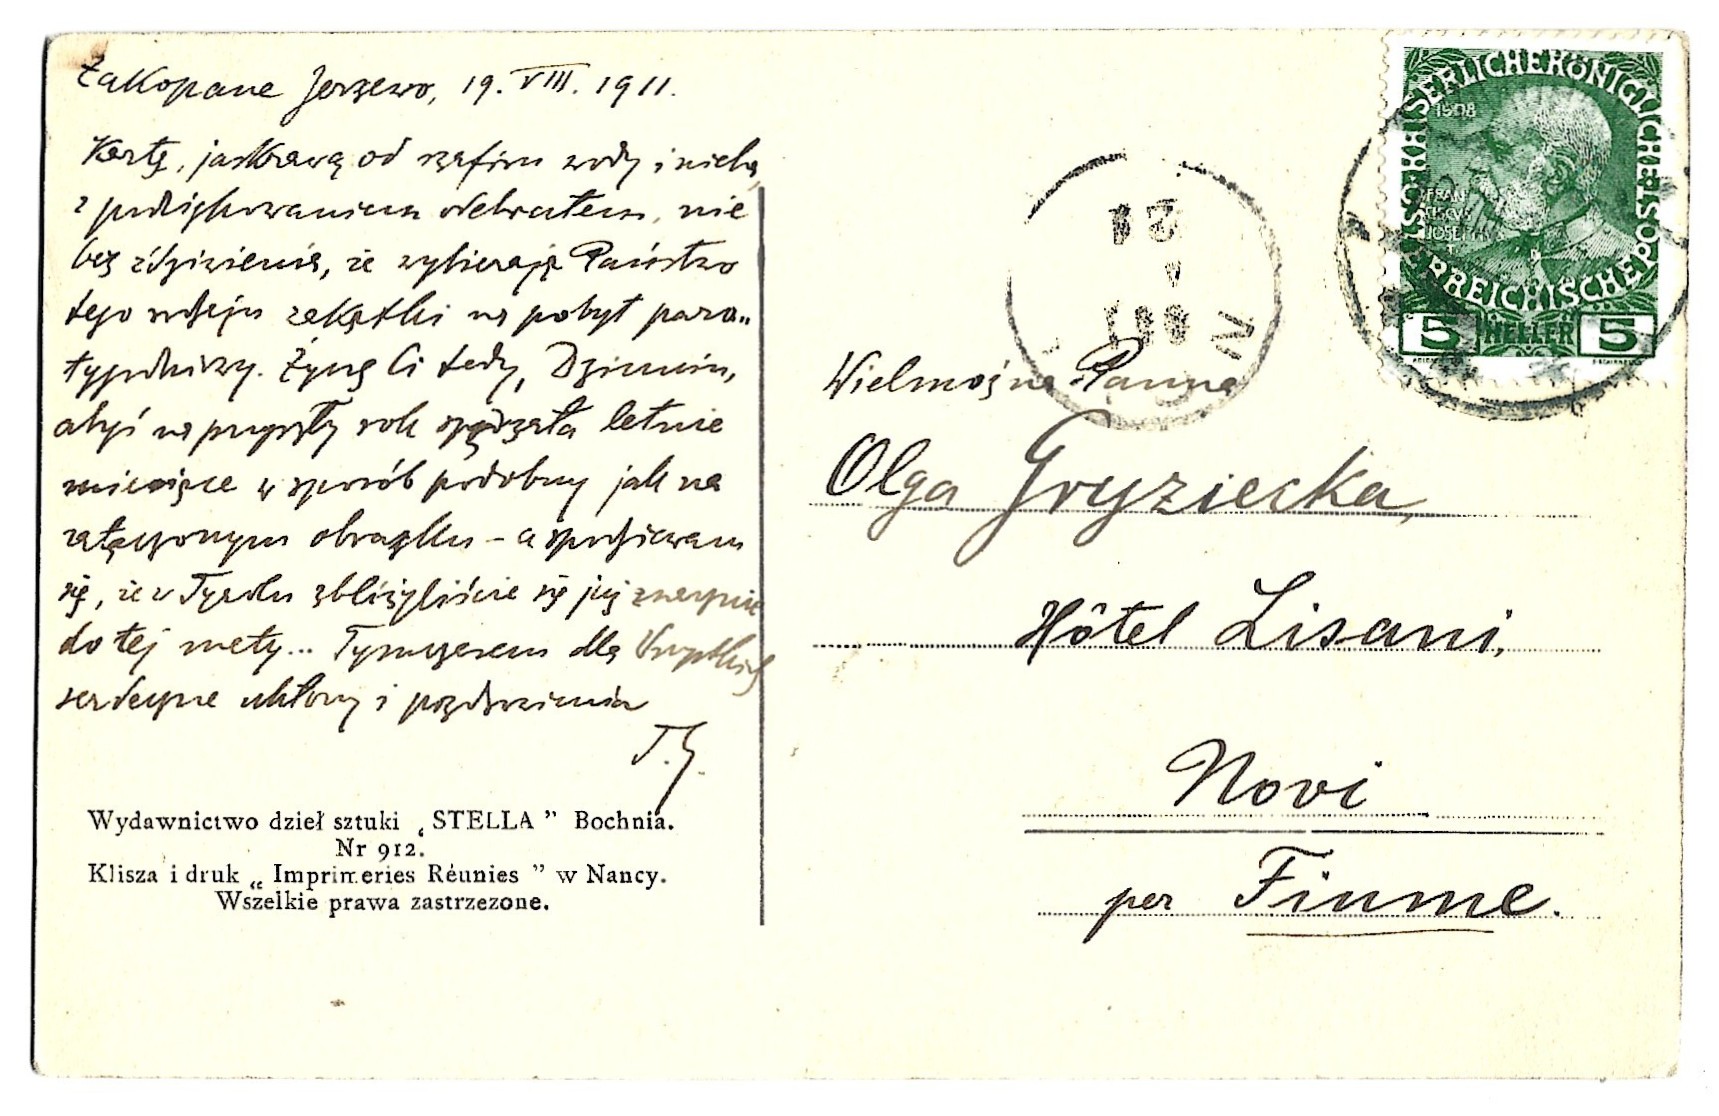 Zakopane Jerzewo, 19. VIII. 1911.
Kartę, jaskrawą od szafiru wody i nieba,
z podziękowaniem odebrałem, nie
bez zdziwienia, że wybierają Państwo
tego rodzaju zakątki na pobyt paro-
tygodniowy. Życzę Ci tedy, Dziuniu,
abyś na przyszły rok spędzała letnie
miesiące w sposób podobny jak na
załączonym obrazku – a spodziewam
się, że w Tyrolu zbliżyliście się już znacznie
do tej mety... Tymczasem dla Wszystkich
serdeczne ukłony i pozdrowienia
T.G.
Wydawnictwo dzieł sztuki „STELLA” Bochnia.
Nr 912.
Klisza i druk „Imprimeries Réunies” w Nancy.
Wszelkie prawa zastrzezone.
KAISERLICHE KÖNIGLICHE ÖSTERREICHISCHE POST
1908
FRANCISCVS
JOSEPH I
5 HELLER 5
21
Wielmożna Panna
Olga Gryziecka,
Hôtel Lisani,
Novi
per Fiume.